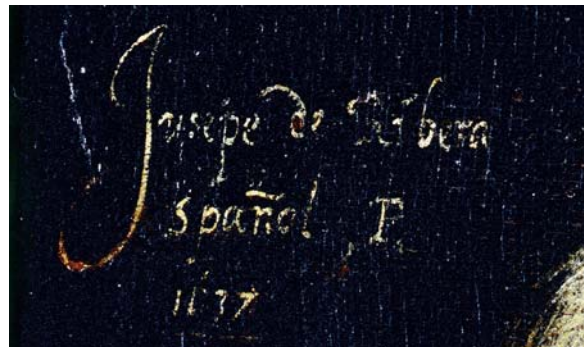 Jusepe de Ribera
español F.
1637